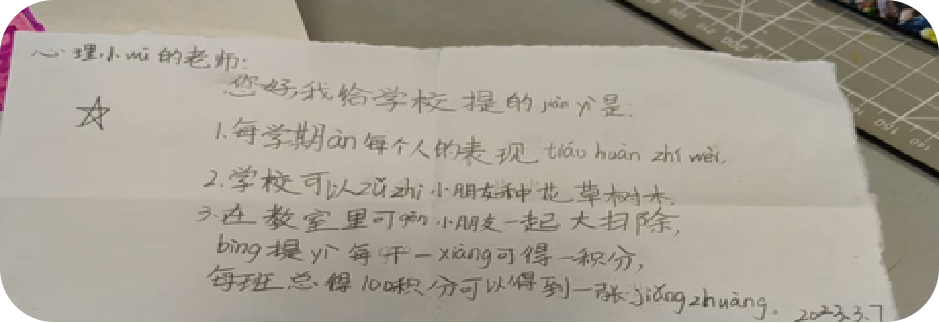 心理小mī的老师:
您好,我给学校提的jiàn yì是:
1.每学期àn每个人的表现 tiáo huàn zhí wèi.
2.学校可以zǔ zhī 小朋友种花草树木.
3.在教室里可 小朋友一起大扫除,
bìng提yì每干一xiàng可得一积分,
每班总得100积分可以得到一张jiǎng zhuàng。 2023.3.7